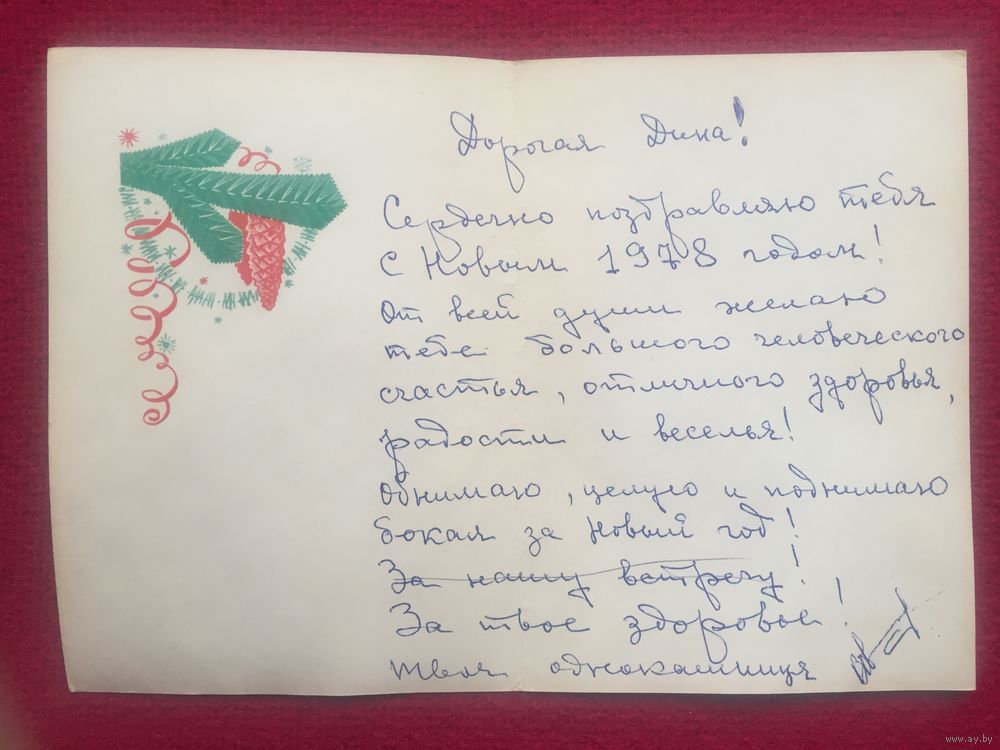 Дорогая Дина!
Сердечно поздравляю тебя
с Новым 1978 годом!
От всей души желаю
тебе большого человеческого
счастья, отличного здоровья,
радости и веселья!
Обнимаю, целую и поднимаю
бокал за Новый год!
За нашу встречу!
За твое здоровье!
Твоя однокашница
www.ay.by